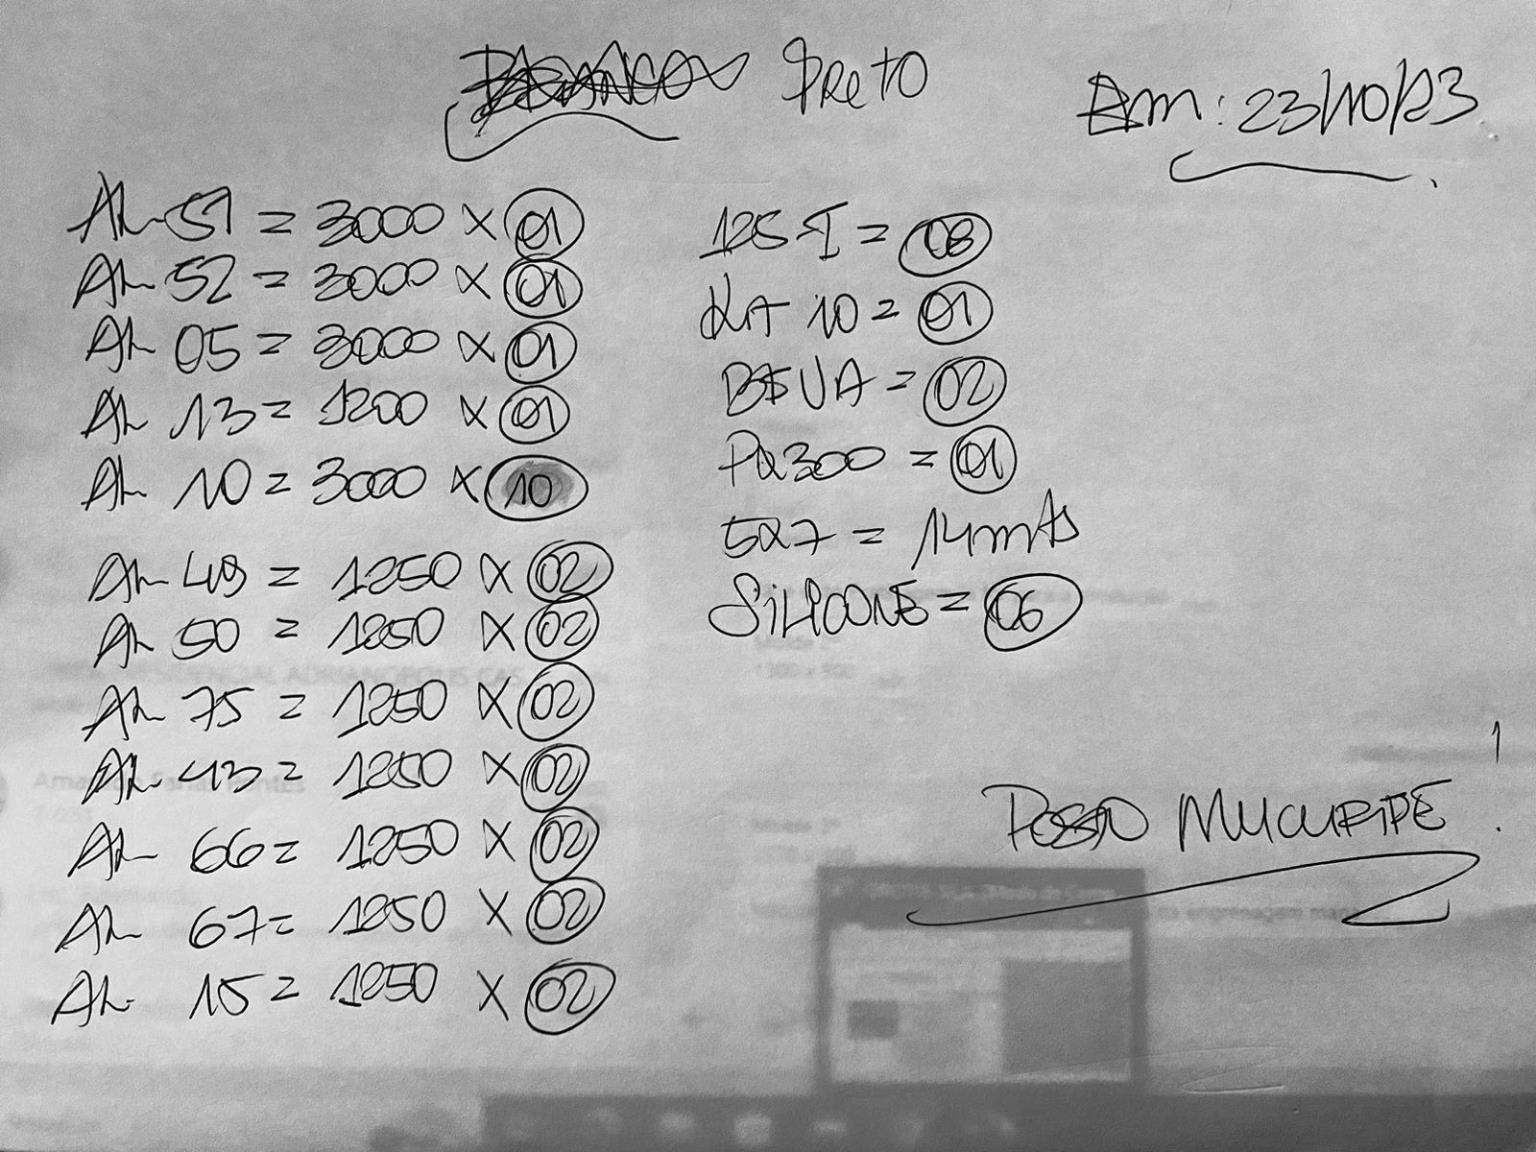 Preto
Em: 23/10/23
AL 51 = 3000 X 01
AL 52 = 3000 X 01
AL 05 = 3000 X 01
AL 13 = 1200 X 01
AL 10 = 3000 X 10
AL 49 = 1250 X 02
AL 50 = 1250 X 02
AL 75 = 1250 X 02
AL 43 = 1250 X 02
AL 66 = 1250 X 02
AL 67 = 1250 X 02
AL 15 = 1250 X 02
125 I = 08
10 = 01
02
300 = 01
5X7 = 14mts
SILICONE = 06
MUCURIPE !